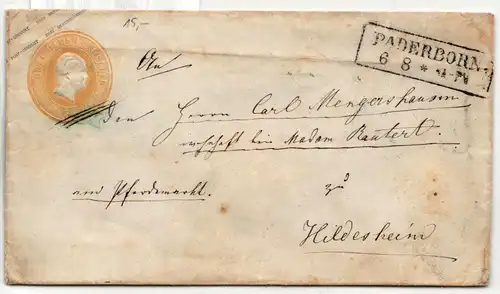 15,-
PADERBORN
6 8 *
An
den Herrn Carl Mengershausen
wohnhaft bei Madam Rautert.
am Pferdemarkt.
zu
Hildesheim